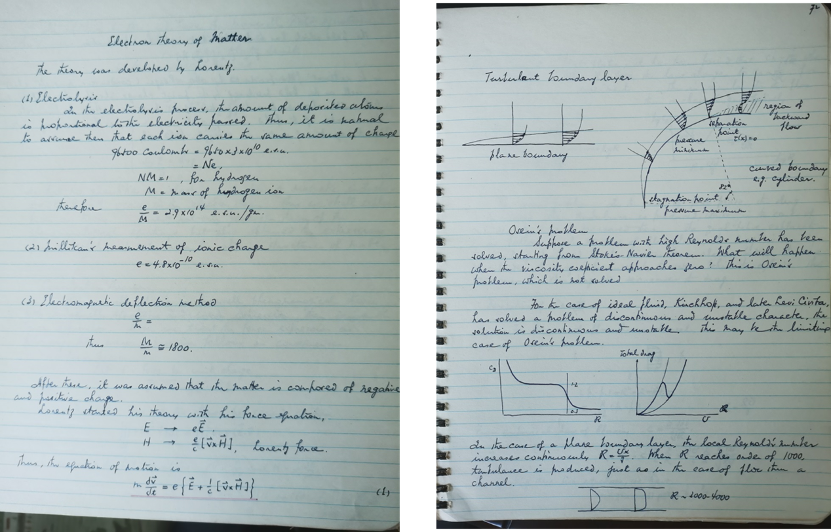 Electron theory of Matter
The theory was developed by Lorentz.
(1) Electrolysis
In the electrolysis process, the amount of deposited atoms
is proportional to the electricity passed. Thus, it is natural
to assume then that each ion carries the same amount of charge
96500 Coulombs = 9650 x 3 x 10^10 e.s.u.
= Ne,
NM = 1, for hydrogen
M = mass of hydrogen ion
therefore e/M = 2.9 x 10^14 e.s.u./gr.
(2) Millikan's measurement of ionic charge
e = 4.8 x 10^-10 e.s.u.
(3) Electromagnetic deflection method
e/m =
thus M/m ≅ 1800.
After these, it was assumed that the matter is composed of negative
and positive charge.
Lorentz started his theory with his force equation,
E → eE⃗.
H → e/c [v⃗ x H⃗], Lorentz force.
Thus, the equation of motion is
m dv⃗/dt = e{E⃗ + 1/c [v⃗ x H⃗]}
(1)
Turbulent boundary layer
plane boundary
separation
point
pressure
minimum
region of
backward
flow
curved boundary
e.g. cylinder.
stagnation point
pressure maximum
Oseen's problem
Suppose a problem with high Reynold's number has been
solved, starting from Stokes Navier theorem. What will happen
when the viscosity coefficient approaches zero? This is Oseen's
problem, which is not solved
For the case of ideal fluid, Kirchhoff, and late Levi Civita,
has solved a problem of discontinuous and unstable character, the
solution is discontinuous and unstable. This may be the limiting
case of Oseen's problem.
Total drag
R
U
In the case of a plane boundary layer, the local Reynold's number
increases continuously R = Ux/ν. When R reaches order of 1000,
turbulence is produced, just as in the case of flow thru a
channel.
R ~ 1000-4000